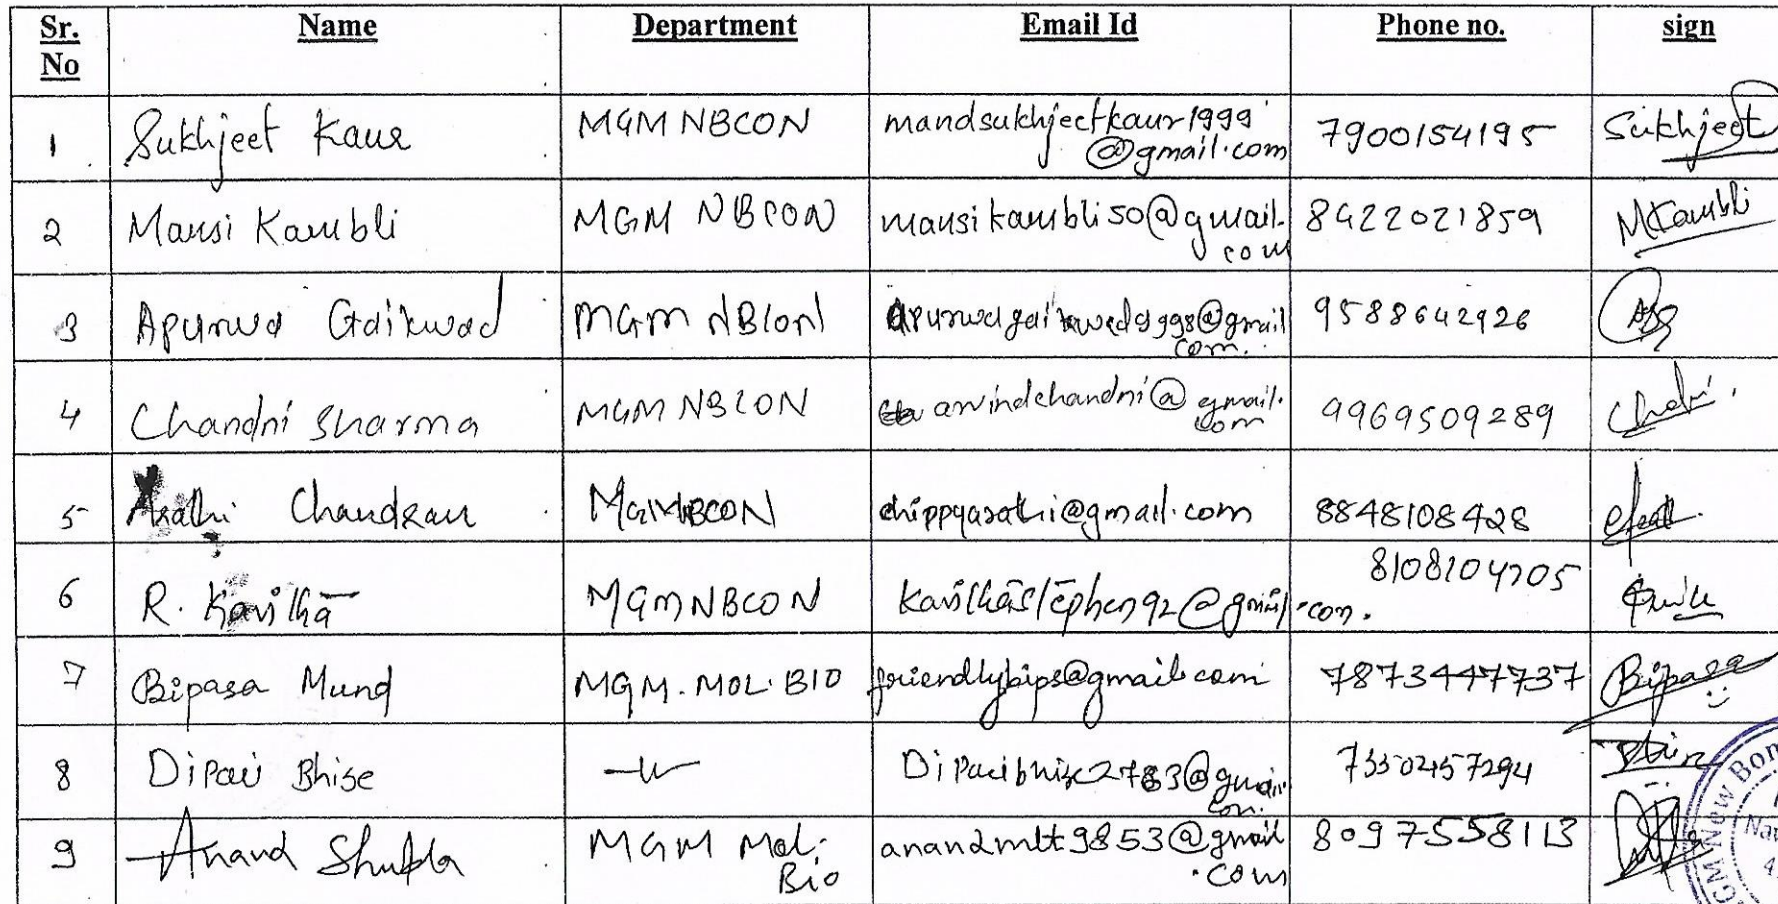 Sr. No Name Department Email Id Phone no. sign
1 Sukhjeet Kaur MGM NBCON mandsukhjeetkaur1999@gmail.com 7900154195 Sukhjeet
2 Mansi Kambli MGM NBCON mansikambli50@gmail.com 8422021859 MKambli
3 Apurwa Gaikwad MGM NBCON apurwagaikwad9998@gmail.com. 9588642926
4 Chandni Sharma MGM NBCON arvindchandni@gmail.com 9969509289
5 Arathi Chandran MGMNBCON chippyarathi@gmail.com 8848108428
6 R. Kavitha MGMNBCON kavithastephen92@gmail.com. 8108104705
7 Bipasa Mund MGM. MOL. BIO friendlybips@gmail.com 7873447737 Bipasa
8 Bhise
9 Anand Shukla MGM Mol. Bio anandmlt9853@gmail.com 8097558113
MGM New Bom